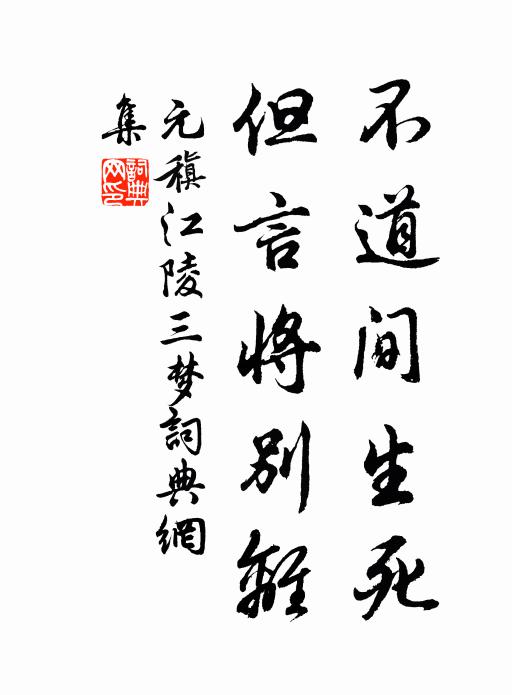 不道间生死
但言将别離
元稹江陵三梦詞典網
集
詞典
网印